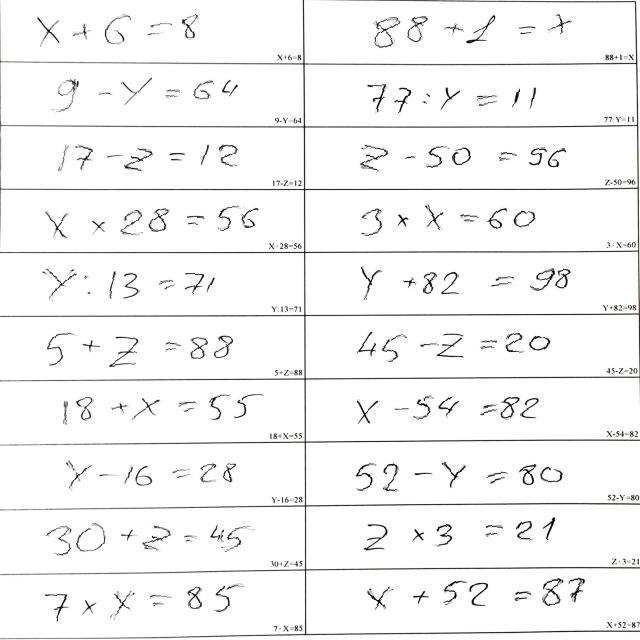 X + 6 = 8
X+6=8
88 + 1 = X
88+1=X
9 - Y = 64
9-Y=64
77 : Y = 11
77:Y=11
17 - Z = 12
17-Z=12
Z - 50 = 96
Z-50=96
X × 28 = 56
X·28=56
3 × X = 60
3·X=60
Y : 13 = 71
Y:13=71
Y + 82 = 98
Y+82=98
5 + Z = 88
5+Z=88
45 - Z = 20
45-Z=20
18 + X = 55
18+X=55
X - 54 = 82
X-54=82
Y - 16 = 28
Y-16=28
52 - Y = 80
52-Y=80
30 + Z = 45
30+Z=45
Z × 3 = 21
Z·3=21
7 × X = 85
7·X=85
X + 52 = 87
X+52=87